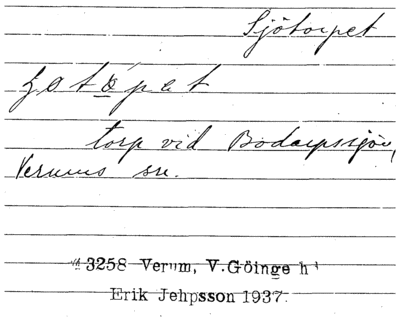 Sjötorpet
torp vid Bodarpssjön,
Verums sn.
3258 Verum, V. Göinge h
Erik Jehpsson 1937.